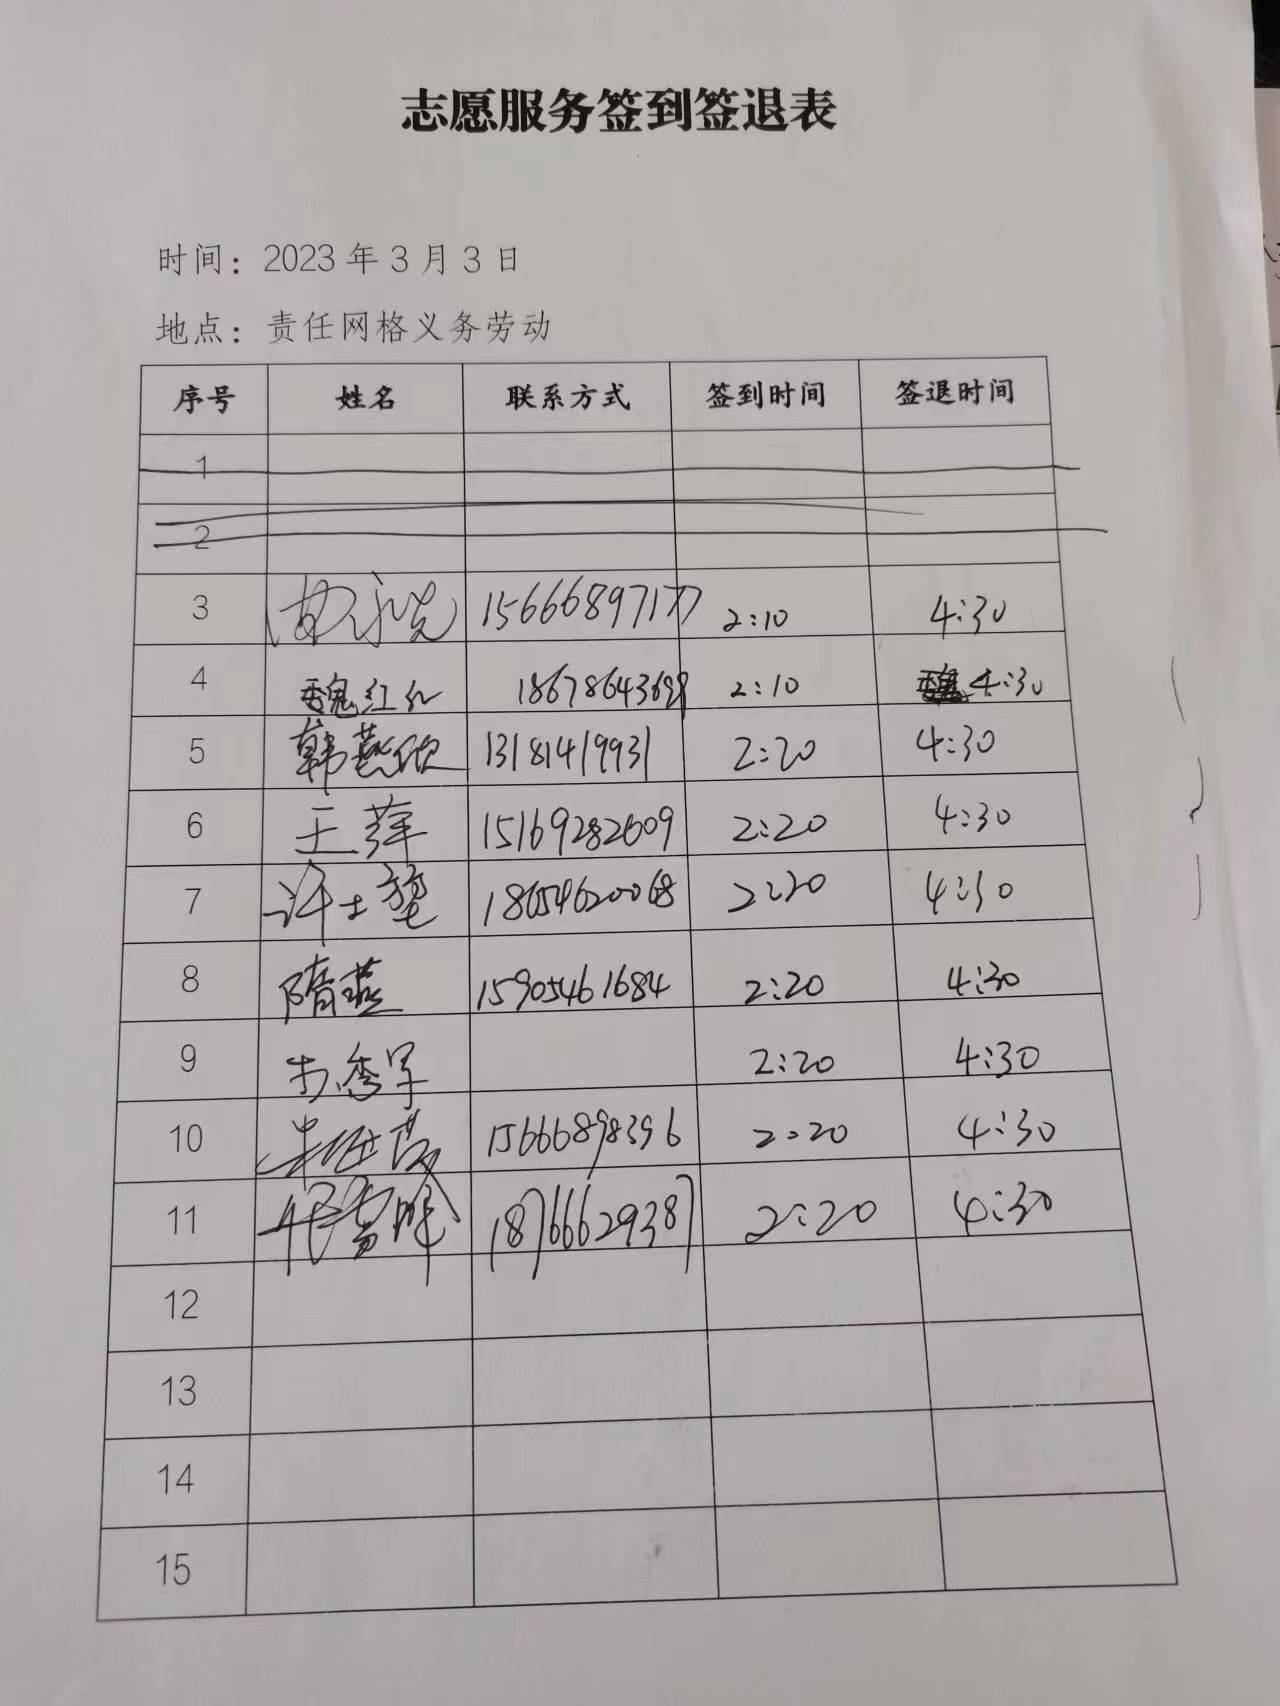 志愿服务签到签退表
时间：2023年3月3日
地点：责任网格义务劳动
序号 姓名 联系方式 签到时间 签退时间
1
2
3 15666897177 2:10 4:30
4 魏红 2:10 4:30
5 韩燕欣 13181419931 2:20 4:30
6 王萍 15169282609 2:20 4:30
7 许士 18654620068 2:20 4:30
8 隋燕 15905461684 2:20 4:30
9 2:20 4:30
10 15666898396 2:20 4:30
11 18766629387 2:20 4:30
12
13
14
15